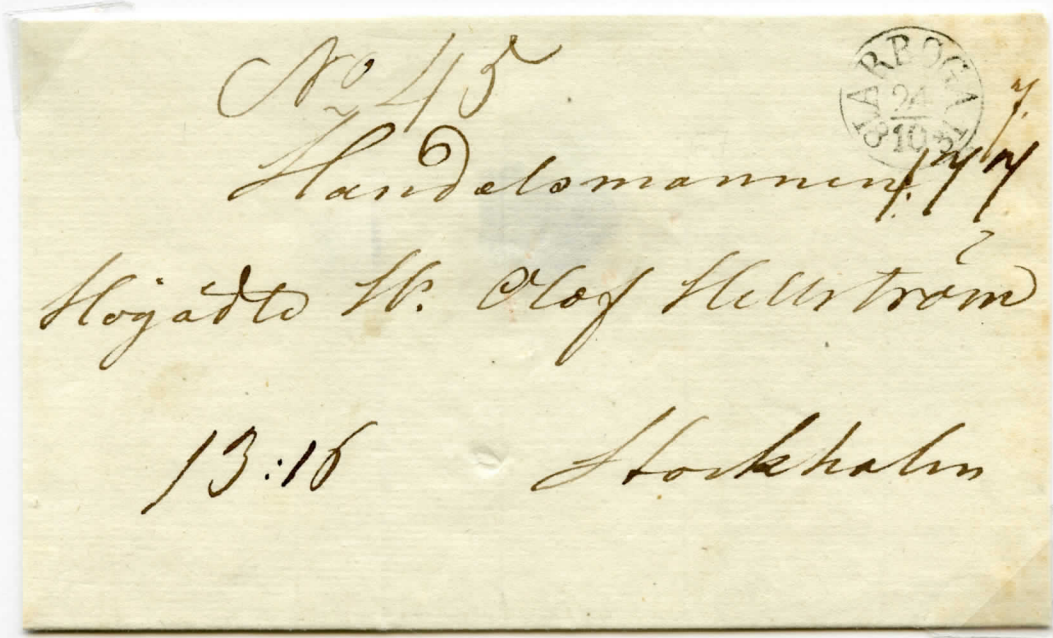 No 45
ARBOGA
24
10
Handelsmannen
Högädle Hr. Olof Hellström
13:16 Stockholm